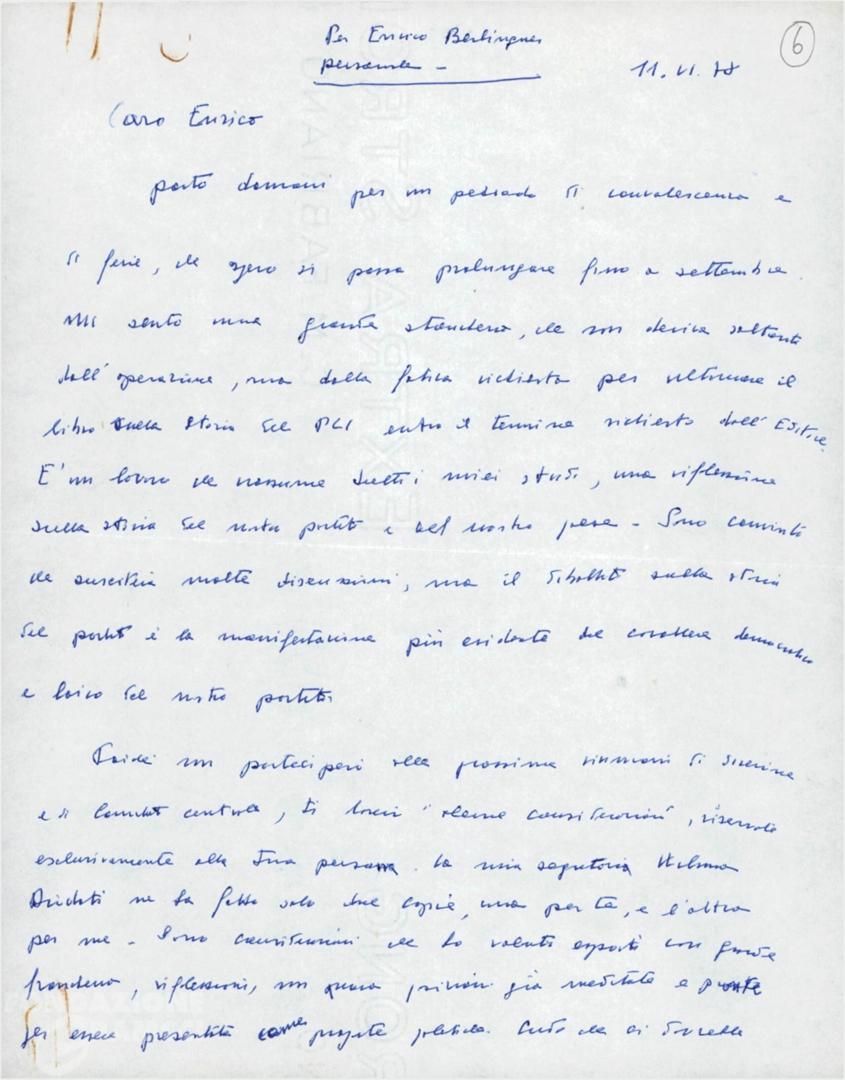 6
Per Enrico Berlinguer
personale -
11. VI. 78
Caro Enrico
parto domani per un periodo di convalescenza e
di ferie, che spero si possa prolungare fino a settembre.
Mi sento una grande stanchezza, che non deriva soltanto
dall'operazione, ma dalla fatica richiesta per ultimare il
libro sulla storia del PCI entro il termine richiesto dall'Editore.
E' un lavoro che riassume tutti i miei studi, una riflessione
sulla storia del nostro partito e del nostro paese - Sono convinto
che susciterà molte discussioni, ma il dibattito sulla storia
del partito è la manifestazione più evidente del carattere democratico
e laico del nostro partito
Poiché non parteciperò alla prossima riunioni di direzione
e di Comitato centrale, ti invio alcune considerazioni, riservate
esclusivamente alla tua persona. La mia segretaria Wilma
ne ha fatto solo due copie, una per te, e l'altra
per me - Sono considerazioni che ho voluto esporti con grande
franchezza, riflessioni, non ancora già meditate e pronte
per essere presentate come proposte politiche. Credo che ci dovrebbe